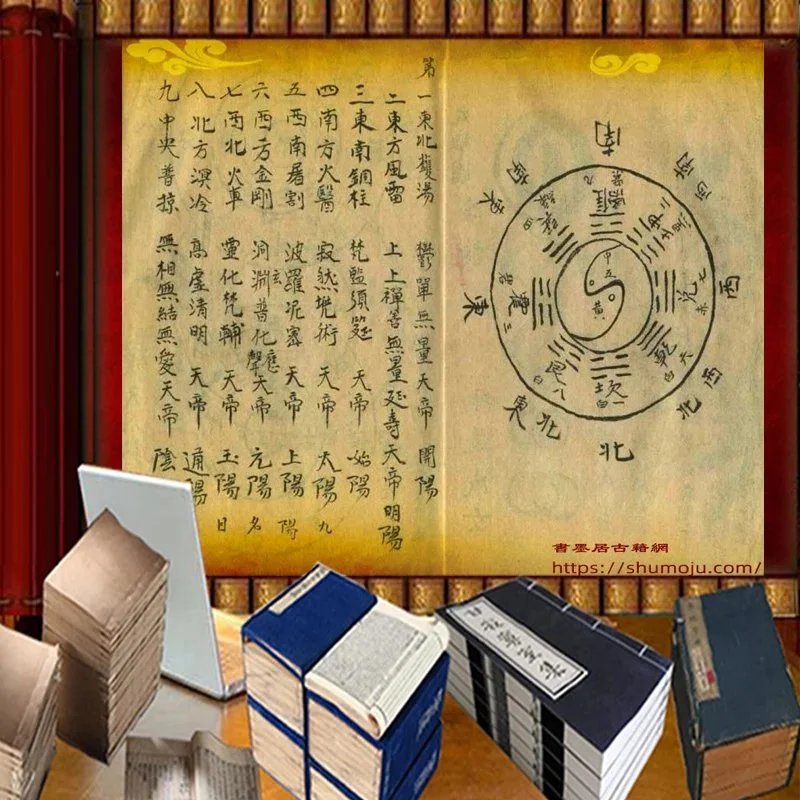 南
西南
西
西北
北
東北
東
東南
兌七赤
乾六白
坎一白
艮八白
震三碧
中五黃
第一東北鑊湯 鬱單無量天帝 開陽
二東方風雷 上上禪善無量延壽天帝 明陽
三東南銅柱 梵監須筵 天帝 始陽
四南方火醫 寂然兜術 天帝 太陽 九
五西南屠割 波羅泥密 天帝 上陽 陽
六西方金剛 洞淵玄普化應聲天帝 元陽 名
七西北火車 靈化梵輔 天帝 玉陽 日
八北方溟冷 高虛清明 天帝 通陽
九中央普掠 無相無結無愛天帝 陰
書墨居古籍網
https://shumoju.com/